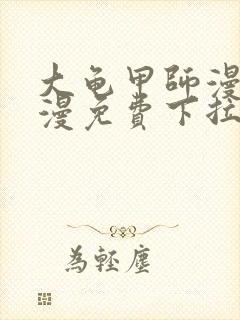 大龟甲師漫
漫免費下拉
為輕塵